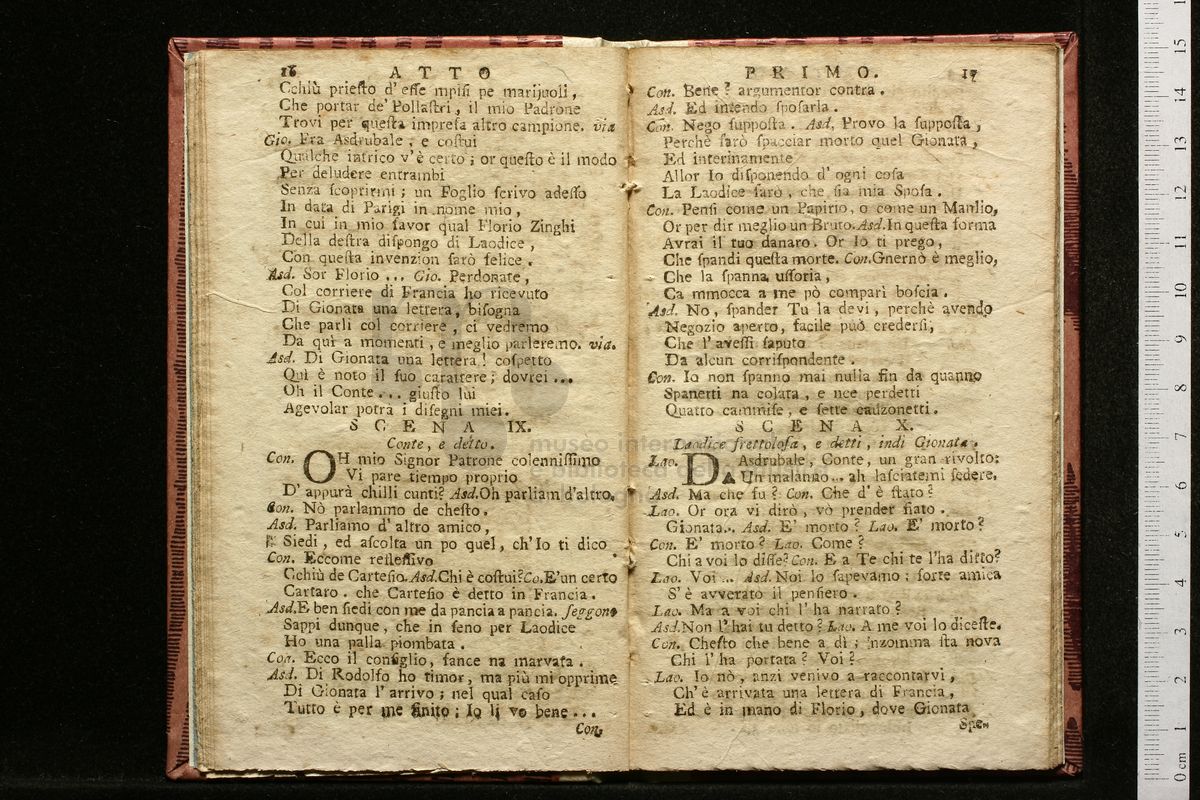 16 ATTO
Cchiù priesto d' esse mpisi pe marijuoli,
Che portar de' Pollastri, il mio Padrone
Trovi per questa impresa altro campione. via
Gio. Fra Asdrubale, e costui
Qualche intrico v'è certo; or questo è il modo
Per deludere entrambi
Senza scoprirmi; un Foglio scrivo adesso
In data di Parigi in nome mio,
In cui in mio favor qual Florio Zinghi
Della destra dispongo di Laodice,
Con questa invenzion sarò felice.
Asd. Sor Florio ... Gio. Perdonate,
Col corriere di Francia ho ricevuto
Di Gionata una lettera, bisogna
Che parli col corriere, ci vedremo
Da quì a momenti, e meglio parleremo. via.
Asd. Di Gionata una lettera! cospetto
Quì è noto il suo carattere; dovrei ...
Oh il Conte... giusto lui
Agevolar potrà i disegni miei.
SCENA IX.
Conte, e detto.
Con. OH mio Signor Patrone colennissimo
Vi pare tiempo proprio
D' appurà chilli cunti? Asd. Oh parliam d'altro.
Con. Nò parlammo de chesto.
Asd. Parliamo d' altro amico,
Siedi, ed ascolta un po quel, ch'Io ti dico
Con. Eccome reflessivo
Cchiù de Cartesio. Asd. Chi è costui? Co. E'un certo
Cartaro. che Cartesio è detto in Francia.
Asd. E ben siedi con me da pancia a pancia. seggono
Sappi dunque, che in seno per Laodice
Ho una palla piombata.
Con. Ecco il consiglio, fance na marvata.
Asd. Di Rodolfo ho timor, ma più mi opprime
Di Gionata l' arrivo; nel qual caso
Tutto è per me finito; Io li vo bene...
Con.
PRIMO. 17
Con. Bene? argumentor contra.
Asd. Ed intendo sposarla.
Con. Nego supposta. Asd. Provo la supposta,
Perchè farò spacciar morto quel Gionata,
Ed interinamente
Allor Io disponendo d' ogni cosa
La Laodice farò, che sia mia Sposa.
Con. Pensi come un Papirio, o come un Manlio,
Or per dir meglio un Bruto. Asd. In questa forma
Avrai il tuo danaro. Or Io ti prego,
Che spandi questa morte. Con. Gnernò è meglio,
Che la spanna ussoria,
Ca mmocca a me pò comparì boscia.
Asd. No, spander Tu la devi, perchè avendo
Negozio aperto, facile può credersi,
Che l' avessi saputo
Da alcun corrispondente.
Con. Io non spanno mai nulla fin da quanno
Spanetti na colata, e nce perdetti
Quatto cammise, e sette cauzonetti.
SCENA X.
Laodice frettolosa, e detti, indi Gionata.
Lao. DA Asdrubale, Conte, un gran rivolto:
Un malanno... ah lasciatemi sedere.
Asd. Ma che fu? Con. Che d' è stato?
Lao. Or ora vi dirò, vò prender fiato.
Gionata.. Asd. E' morto? Lao. E' morto?
Con. E' morto? Lao. Come?
Chi a voi lo disse? Con. E a Te chi te l'ha ditto?
Lao. Voi... Asd. Noi lo sapevamo: forte amica
S' è avverato il pensiero.
Lao. Ma a voi chi l' ha narrato?
Asd. Non l'hai tu detto? Lao. A me voi lo diceste.
Con. Chesto che bene a dì; 'nzomma sta nova
Chi l' ha portata? Voi?
Lao. Io nò, anzi venivo a raccontarvi,
Ch' è arrivata una lettera di Francia,
Ed è in mano di Florio, dove Gionata